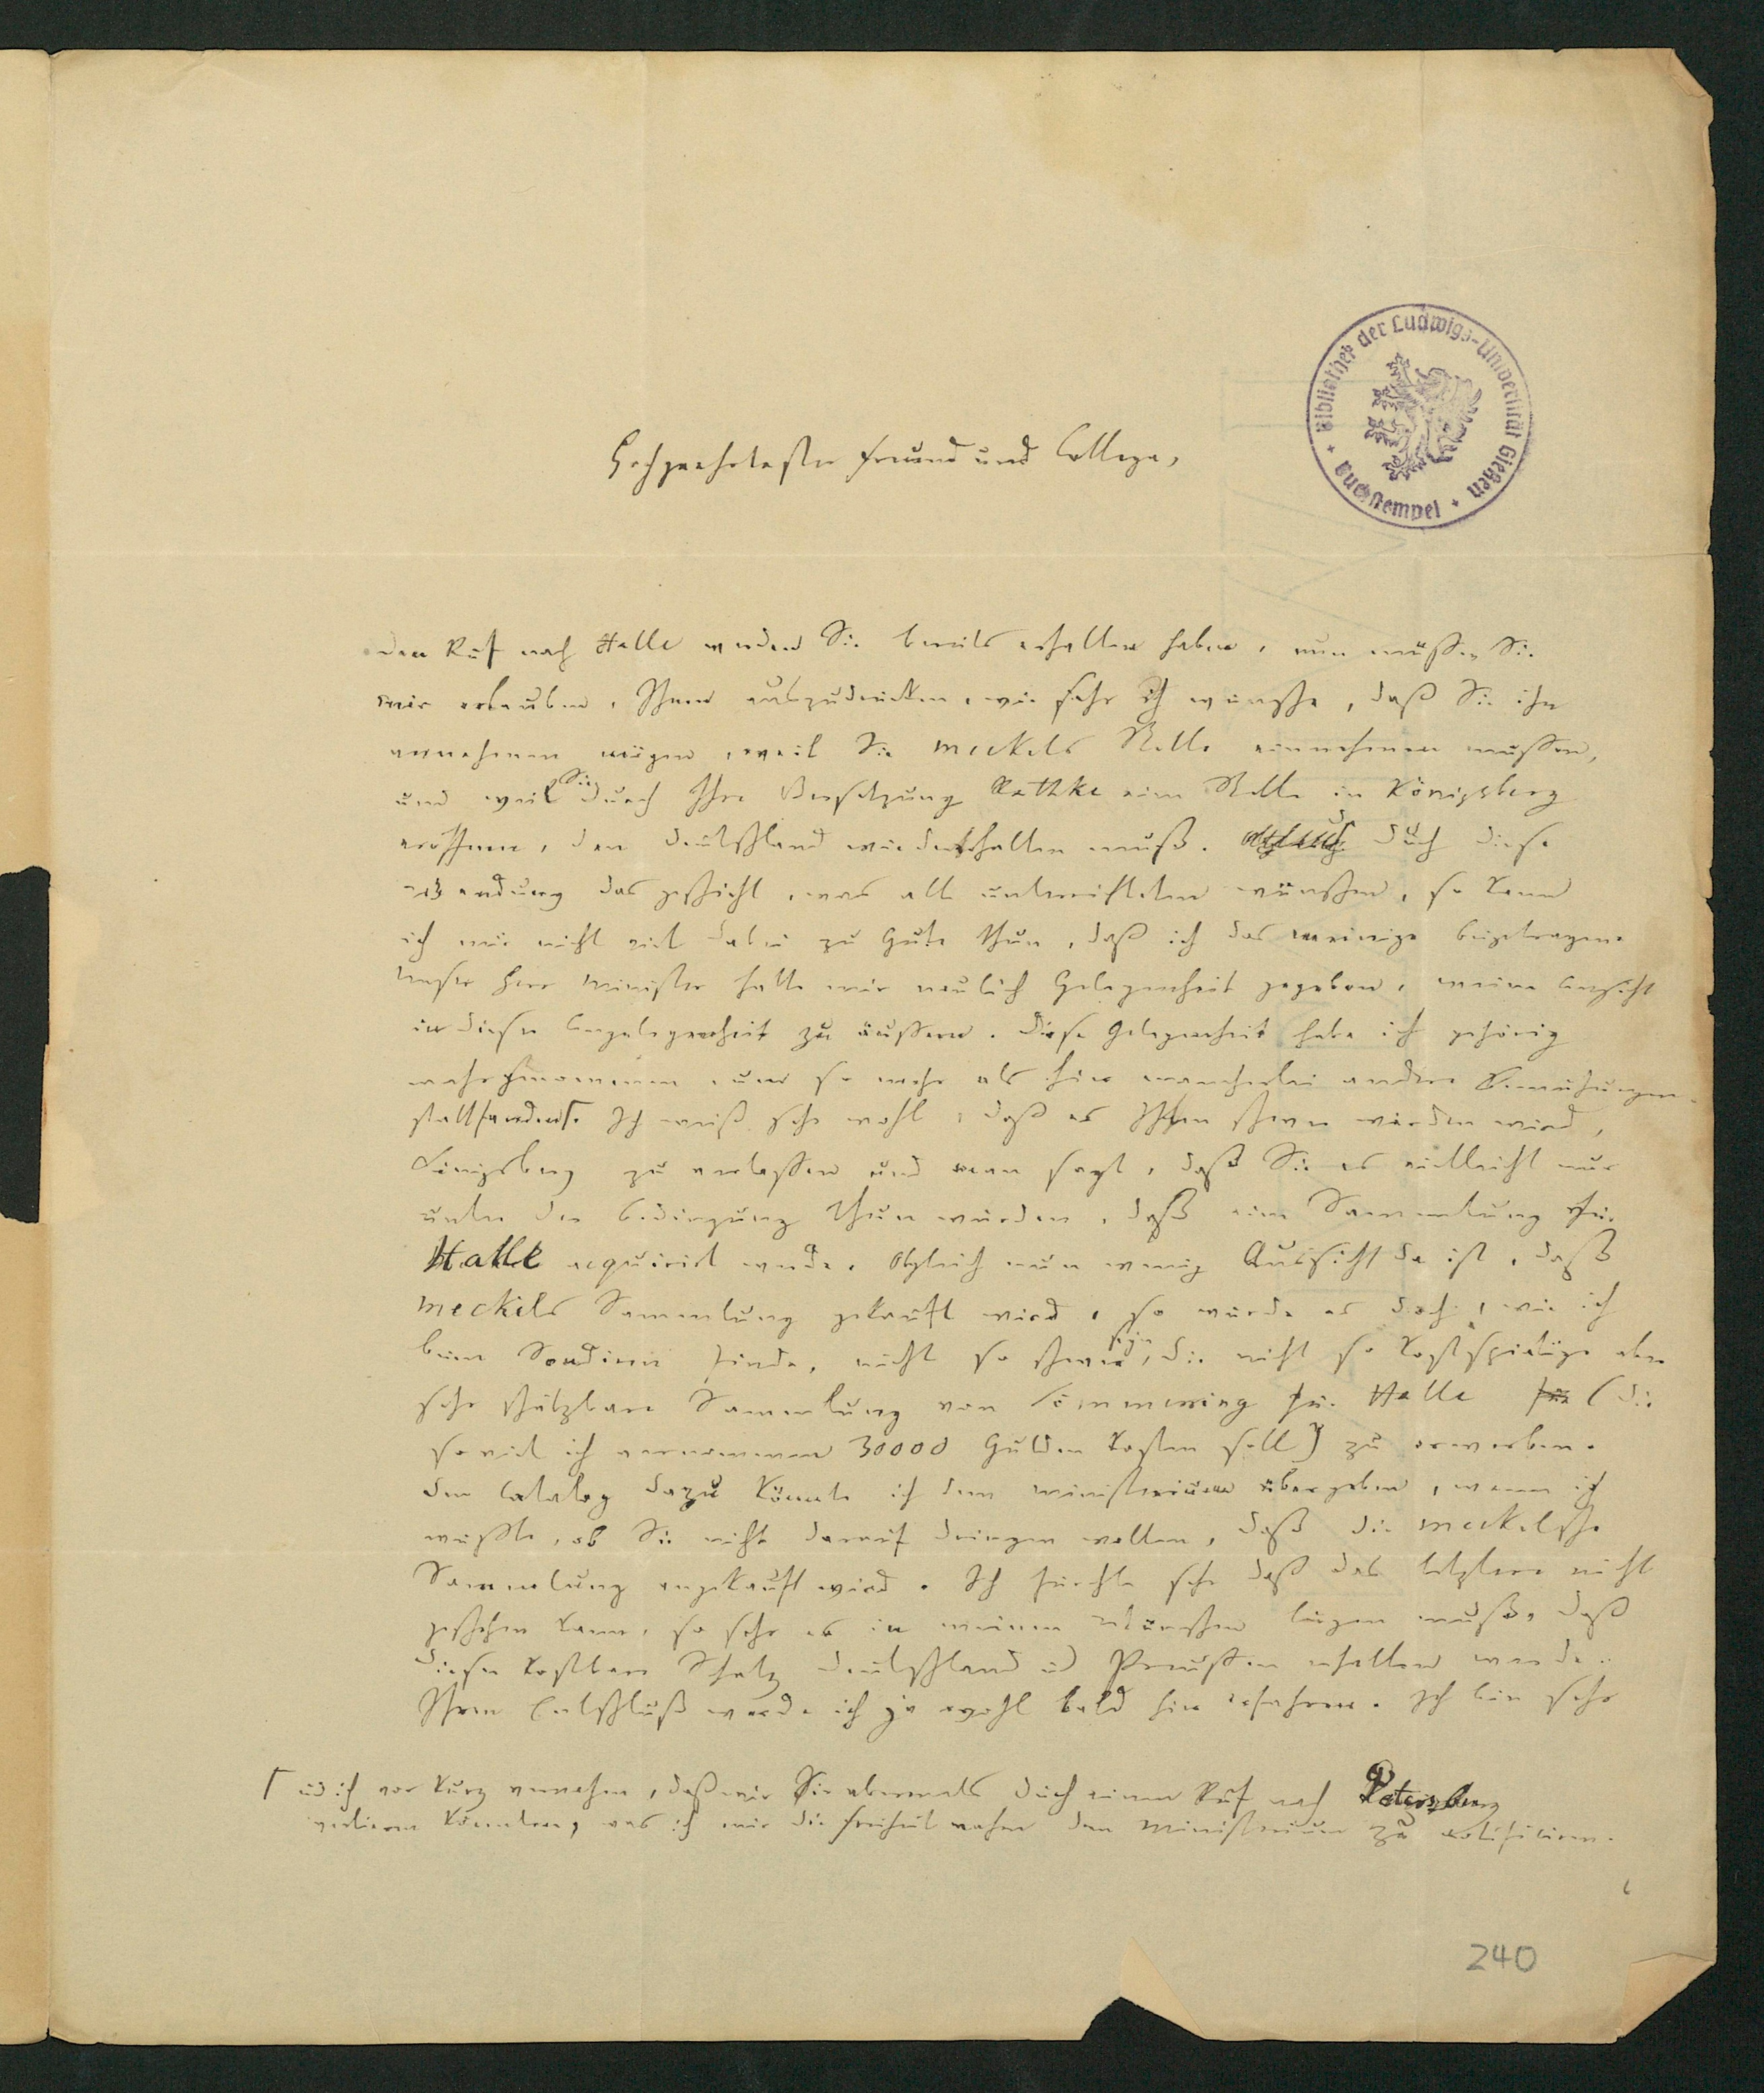 Bibliothek der Ludwigs-Universität Gießen
Buchstempel
Hochgeehrtester Freund und College,
den Ruf nach Halle werden Sie bereits erhalten haben, nun müssen Sie
mir erlauben, Ihnen auszudrücken, wie sehr ich wünsche, daß Sie ihn
annehmen mögen, weil Sie Meckels Stelle einnehmen müssen,
und weil Sie durch Ihre Versetzung Rathke eine Stelle in Königsberg
eröffnen, den Deutschland wiedererhalten muß. Durch diese
Wendung das geschieht, was alle unterrichteten wünschen, so kann
ich mir nicht viel dabei zu Gute thun, daß ich das meinige beigetragen.
Unser Herr Minister hatte mir neulich Gelegenheit gegeben, meine Ansicht
in dieser Angelegenheit zu äußern. Diese Gelegenheit habe ich gehörig
wahrgenommen um so mehr als hier mancherlei andere Bemühungen
stattfanden. Ich weiß sehr wohl, daß es Ihnen schwer werden wird,
Königsberg zu verlassen und man sagt, daß Sie es vielleicht nur
unter der Bedingung thun würden, daß eine Sammlung für
Halle acquirirt werde. Obgleich nun wenig Aussicht da ist, daß
Meckels Sammlung gekauft wird, so würde es doch, wie ich
beim Sondiren finde, nicht so schwer seyn, die nicht so kostspielige aber
sehr schätzbare Sammlung von Sömmering für Halle (die
so viel ich vernommen 30000 Gulden kosten soll) zu erwerben.
Den Catalog dazu könnte ich dem Ministerium übergeben, wenn ich
wüßte, ob Sie nicht darauf dringen wollen, daß die Meckelsche
Sammlung angekauft wird. Ich fürchte sehr daß das letztere nicht
geschehen kann, so sehr es in meinen Wünschen liegen muß, daß
dieser kostbare Schatz Deutschland u Preußen erhalten werde.
Ihren Entschluß werde ich ja wohl bald hier erfahren. Ich bin sehr
⌈ und ich vor Kurz vernahm, daß wir Sie abermals durch einen Ruf nach Petersburg
verlieren könnten, was ich mir die Freiheit nahm dem Ministerium zu notificiren.
240